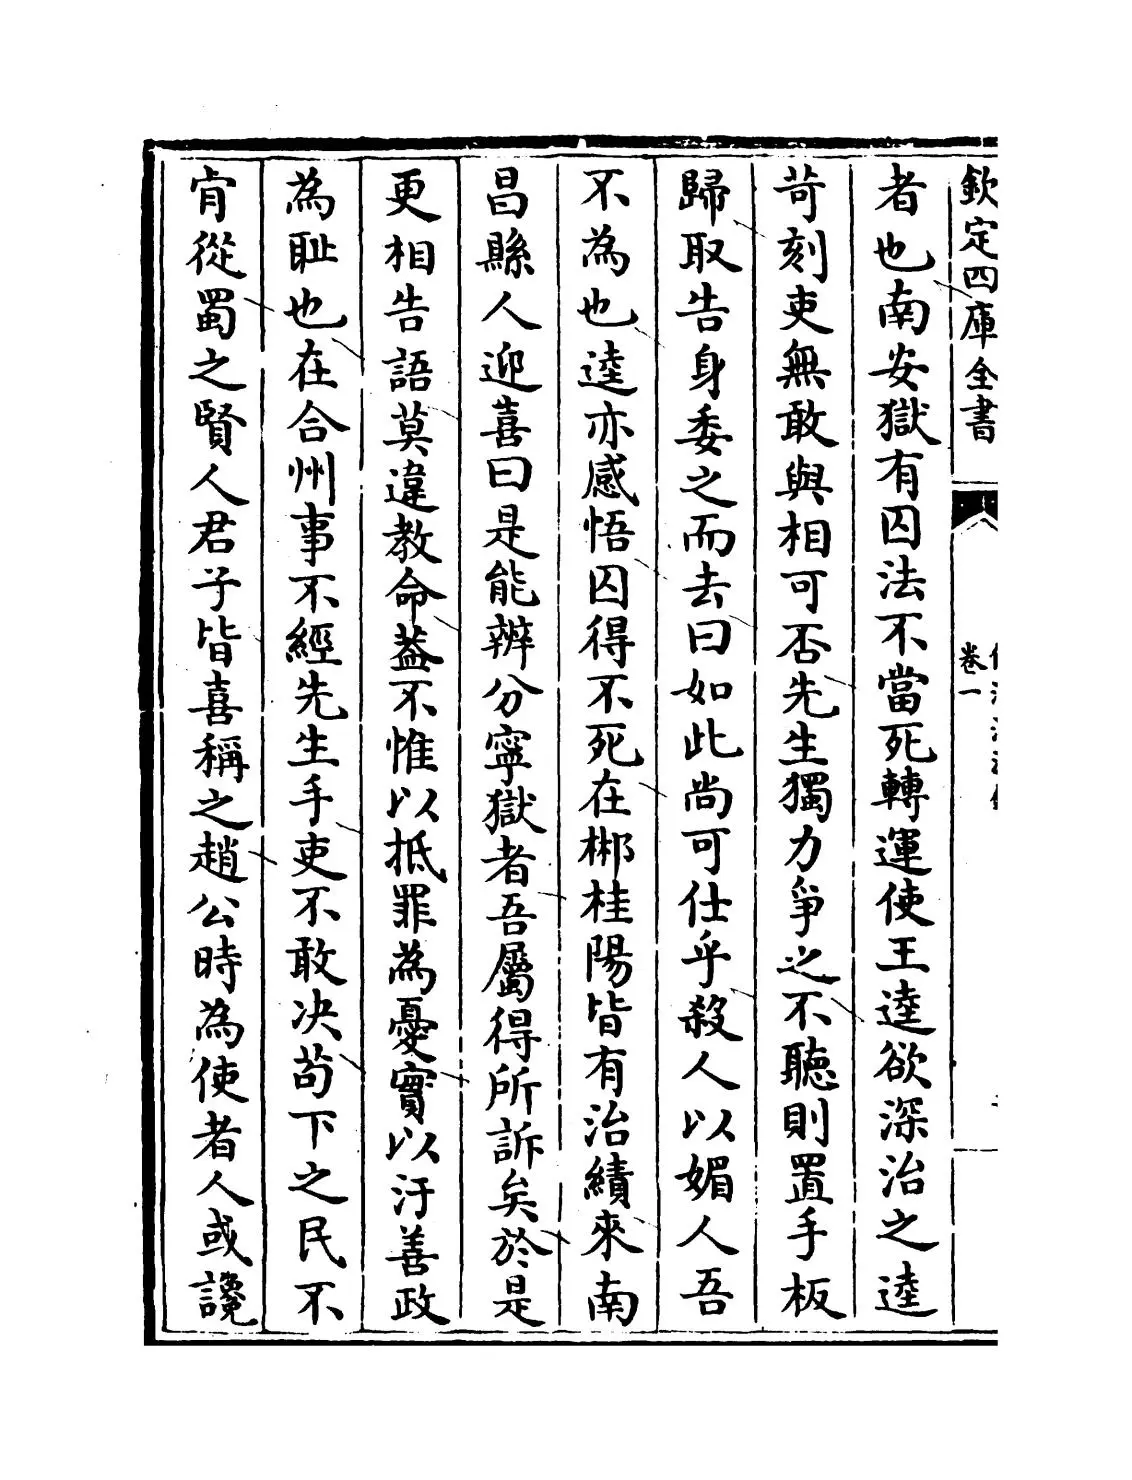 欽定四庫全書
卷一
者也南安獄有囚法不當死轉運使王逵欲深治之逵
苛刻吏無敢與相可否先生獨力爭之不聽則置手板
歸取告身委之而去曰如此尚可仕乎殺人以媚人吾
不為也逵亦感悟囚得不死在郴桂陽皆有治績來南
昌縣人迎喜曰是能辨分寧獄者吾屬得所訴矣於是
更相告語莫違教命葢不惟以抵罪為憂實以汙善政
為耻也在合州事不經先生手吏不敢决苟下之民不
肯從蜀之賢人君子皆喜稱之趙公時為使者人或讒